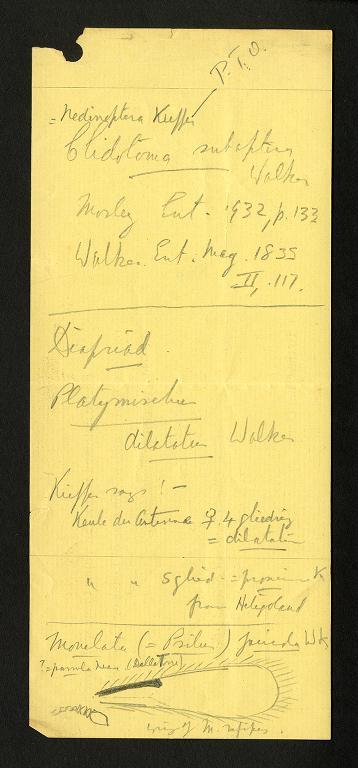 P.T.O.
= Nedinoptera Kieffer
Clidotoma subaptera
Walker
Mosley Ent. 1932, p. 133
Walker. Ent. Mag. 1835
II, .117.
Diapriid.
Platymischus
dilatatus Walker
Kieffer says! —
Keule der Antenna ♀ 4 gliedrig
= dilatatus
" " 5 glied. = proximus K
from Heligoland
Monelata (= Psilus) parvula Wk
? = parvula Nees (Dallatorre)
wing of M. rufipes.